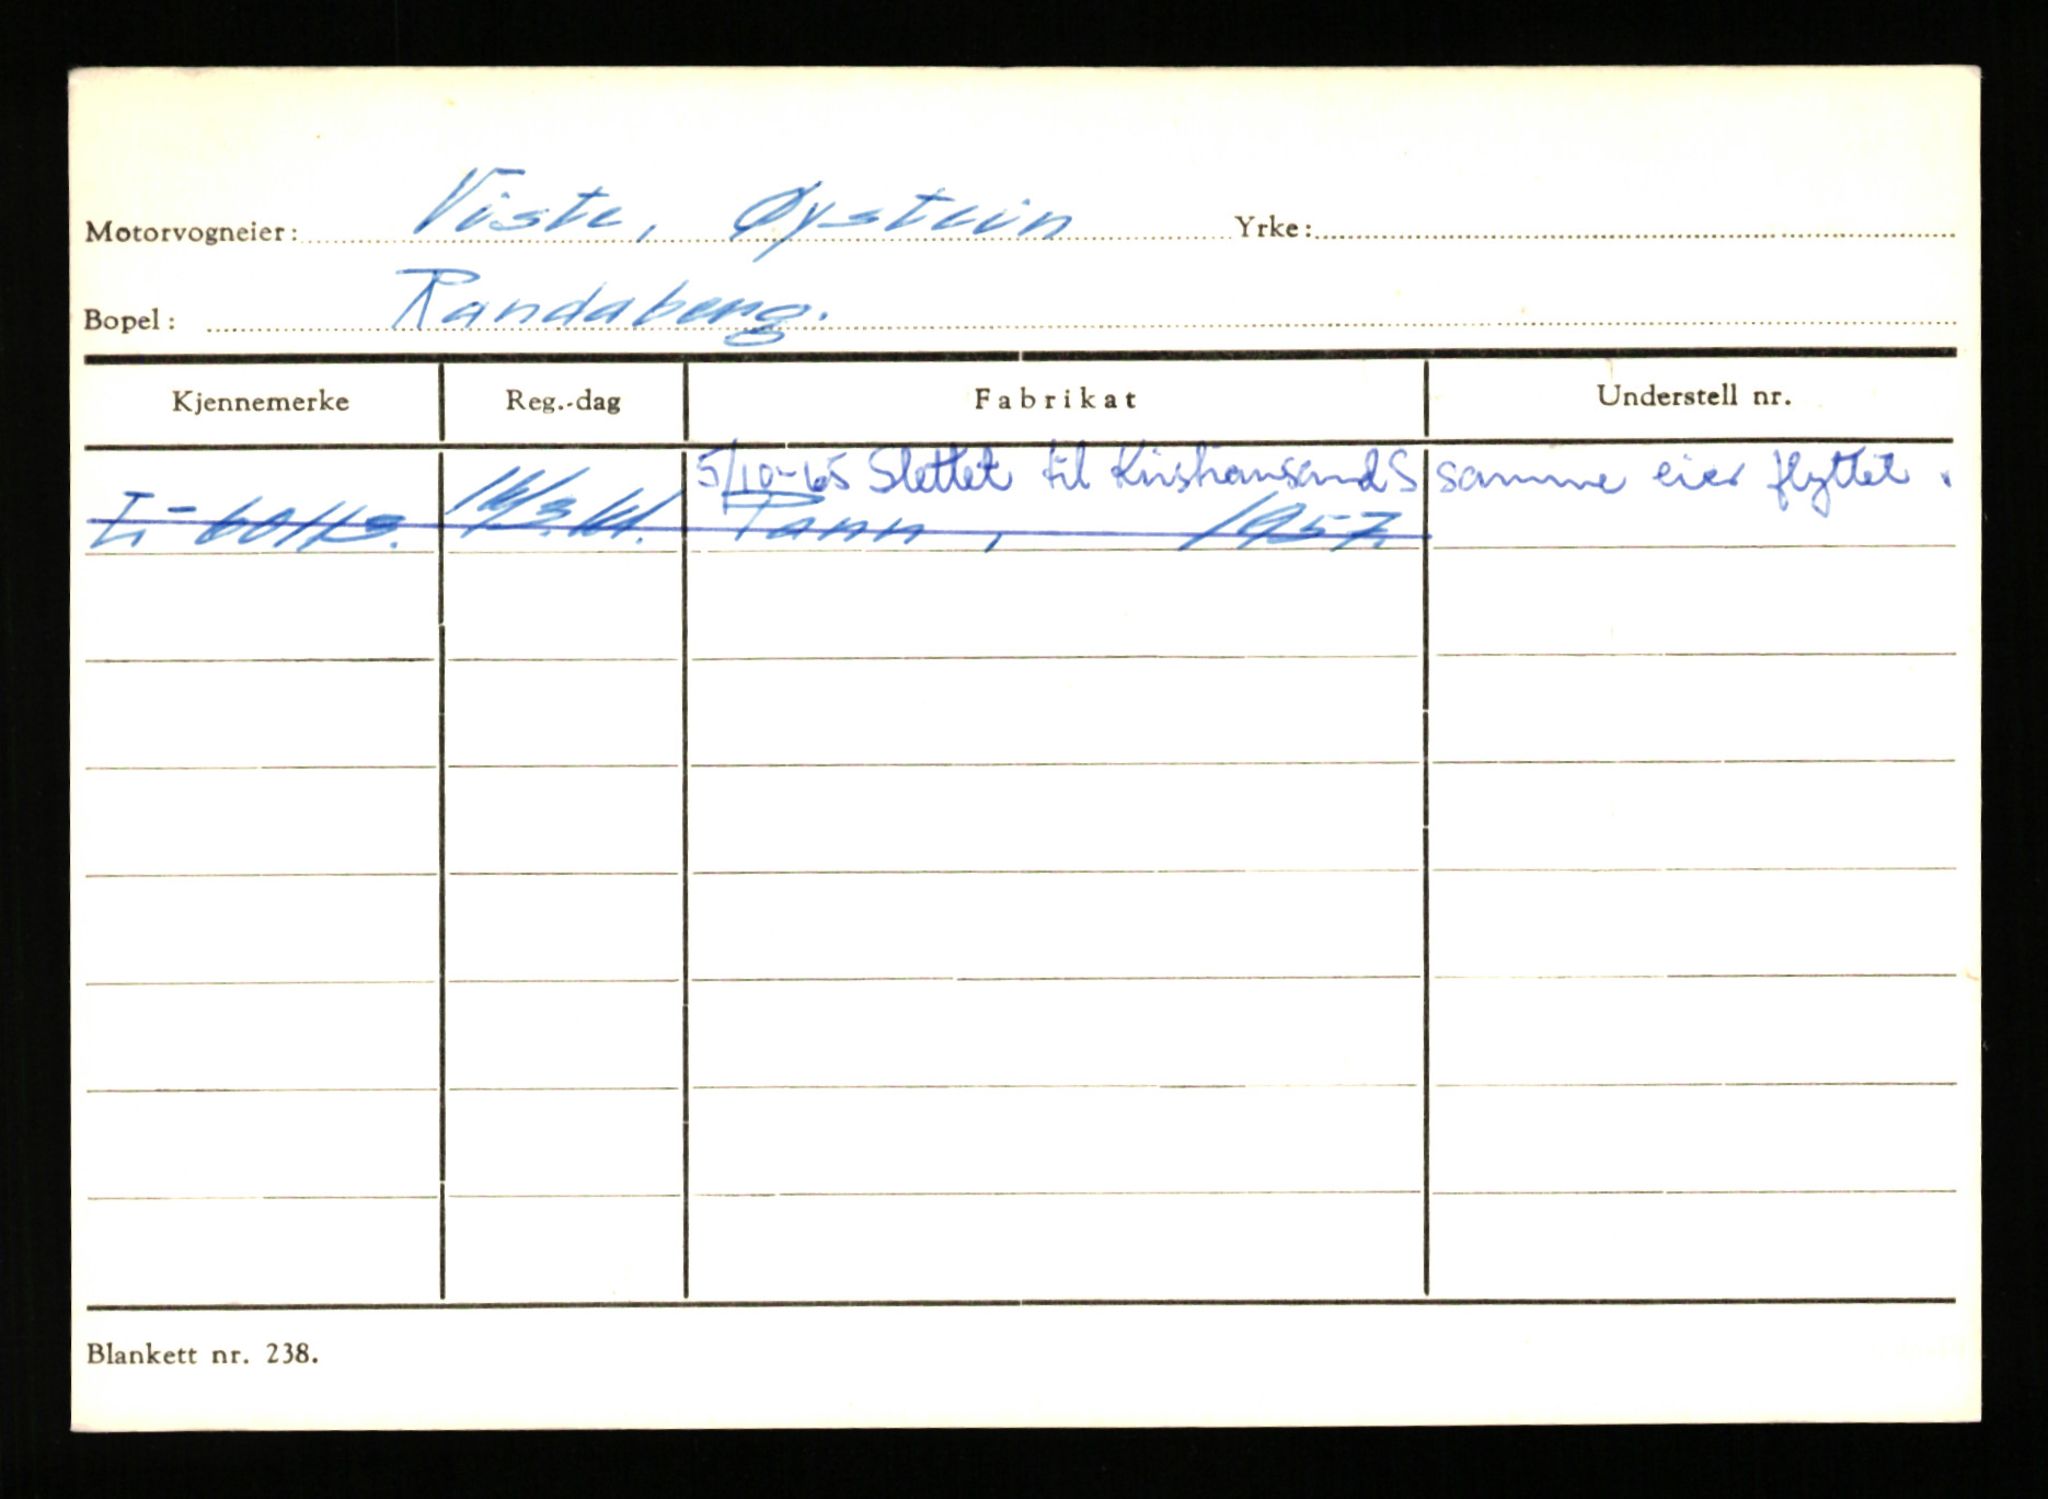 Motorvogneier: Viste, Øystein Yrke:
Bopel: Randaberg.
Kjennemerke Reg.-dag Fabrikat Understell nr.
5/10-65 Slettet til Kristiansand S samme eier flyttet.
1957.
Blankett nr. 238.